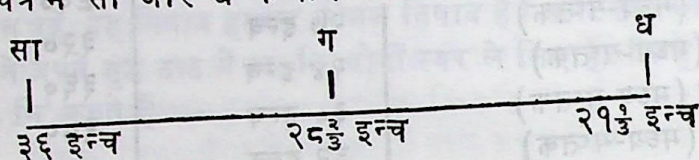 सा ग ध
३६ इन्च २८ २/३ इन्च २१ १/३ इन्च